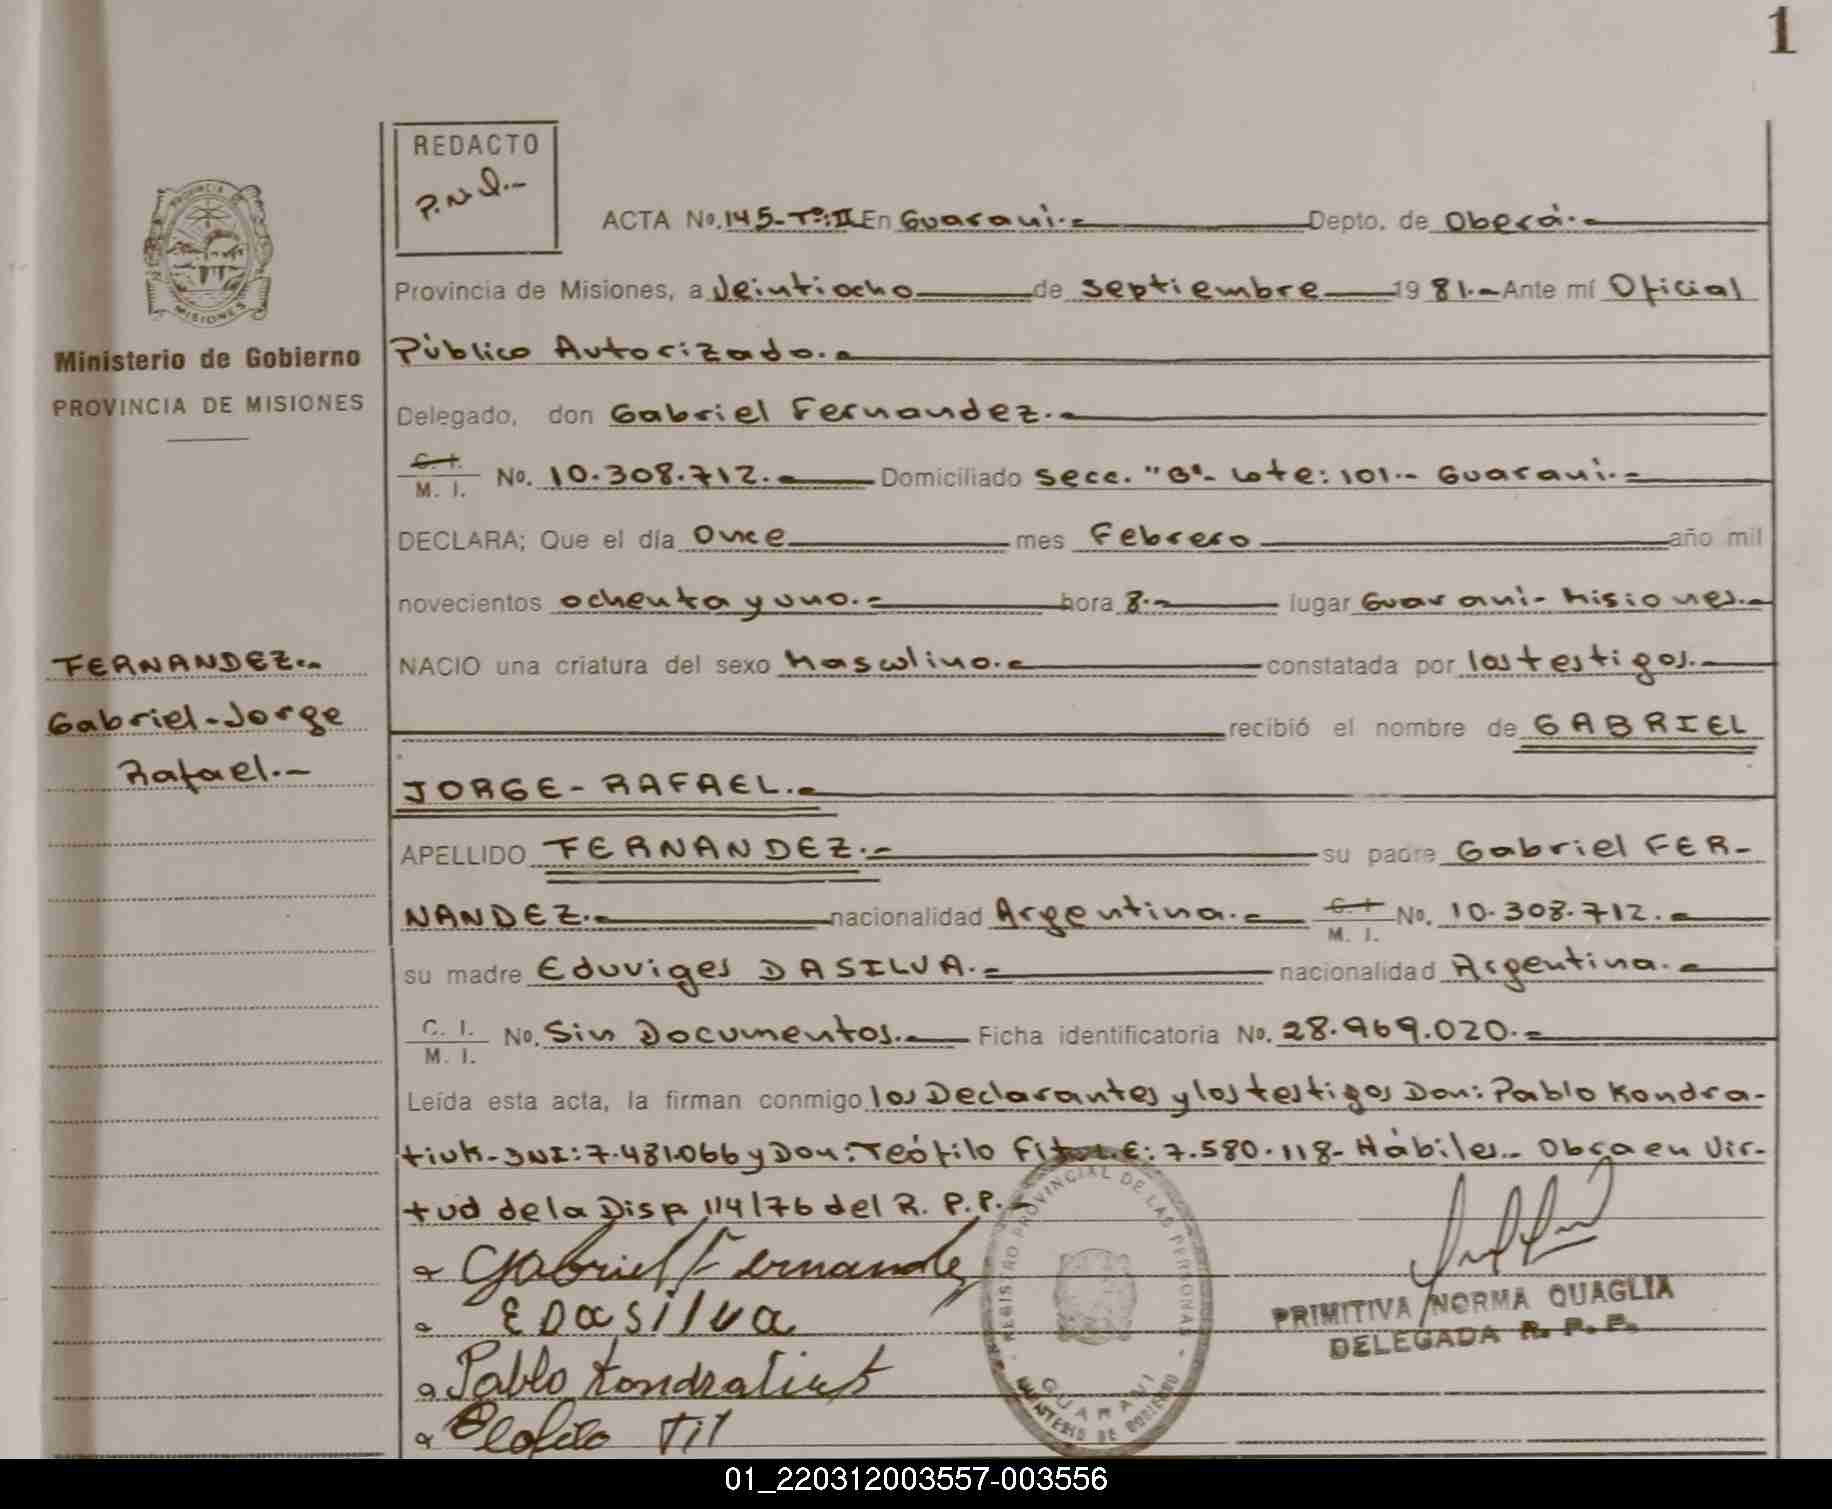 1
REDACTO
P.N.Q.-
PROVINCIA DE
MISIONES
Ministerio de Gobierno
PROVINCIA DE MISIONES
FERNANDEZ.-
Gabriel-Jorge
Rafael.-
ACTA No. 145-Tº:II En Guarani.- Depto. de Oberá.-
Provincia de Misiones, a Veintiocho de septiembre 19 81.- Ante mí Oficial
Público Autorizado.-
Delegado, don Gabriel Fernandez.-
C. I. M. I. No. 10.308.712.- Domiciliado secc. "B"- Lote: 101.- Guarani.-
DECLARA; Que el día Once mes Febrero año mil
novecientos ochenta y uno.- hora 8.- lugar Guarani- Misiones.-
NACIO una criatura del sexo Masculino.- constatada por los testigos.-
recibió el nombre de GABRIEL
JORGE-RAFAEL.-
APELLIDO FERNANDEZ.- su padre Gabriel FER-
NANDEZ.- nacionalidad Argentina.- C. I. M. I. No. 10.308.712.-
su madre Eduviges DASILVA.- nacionalidad Argentina.-
C. I. M. I. No. Sin Documentos.- Ficha identificatoria No. 28.969.020.-
Leída esta acta, la firman conmigo los Declarantes y los testigos Don: Pablo Kondra-
tiuk-DNI: 7.481.066 y Don: Teófilo L.E: 7.580.118- Hábiles.- Obra en Vir-
tud de la Disp. 114/76 del R. P. P.-
Gabriel Fernandez
E Dasilva
Pablo Kondratiuk
REGISTRO PROVINCIAL DE LAS PERSONAS
GUARANI
MINISTERIO DE GOBIERNO
PRIMITIVA NORMA QUAGLIA
DELEGADA R. P. P.
01_220312003557-003556